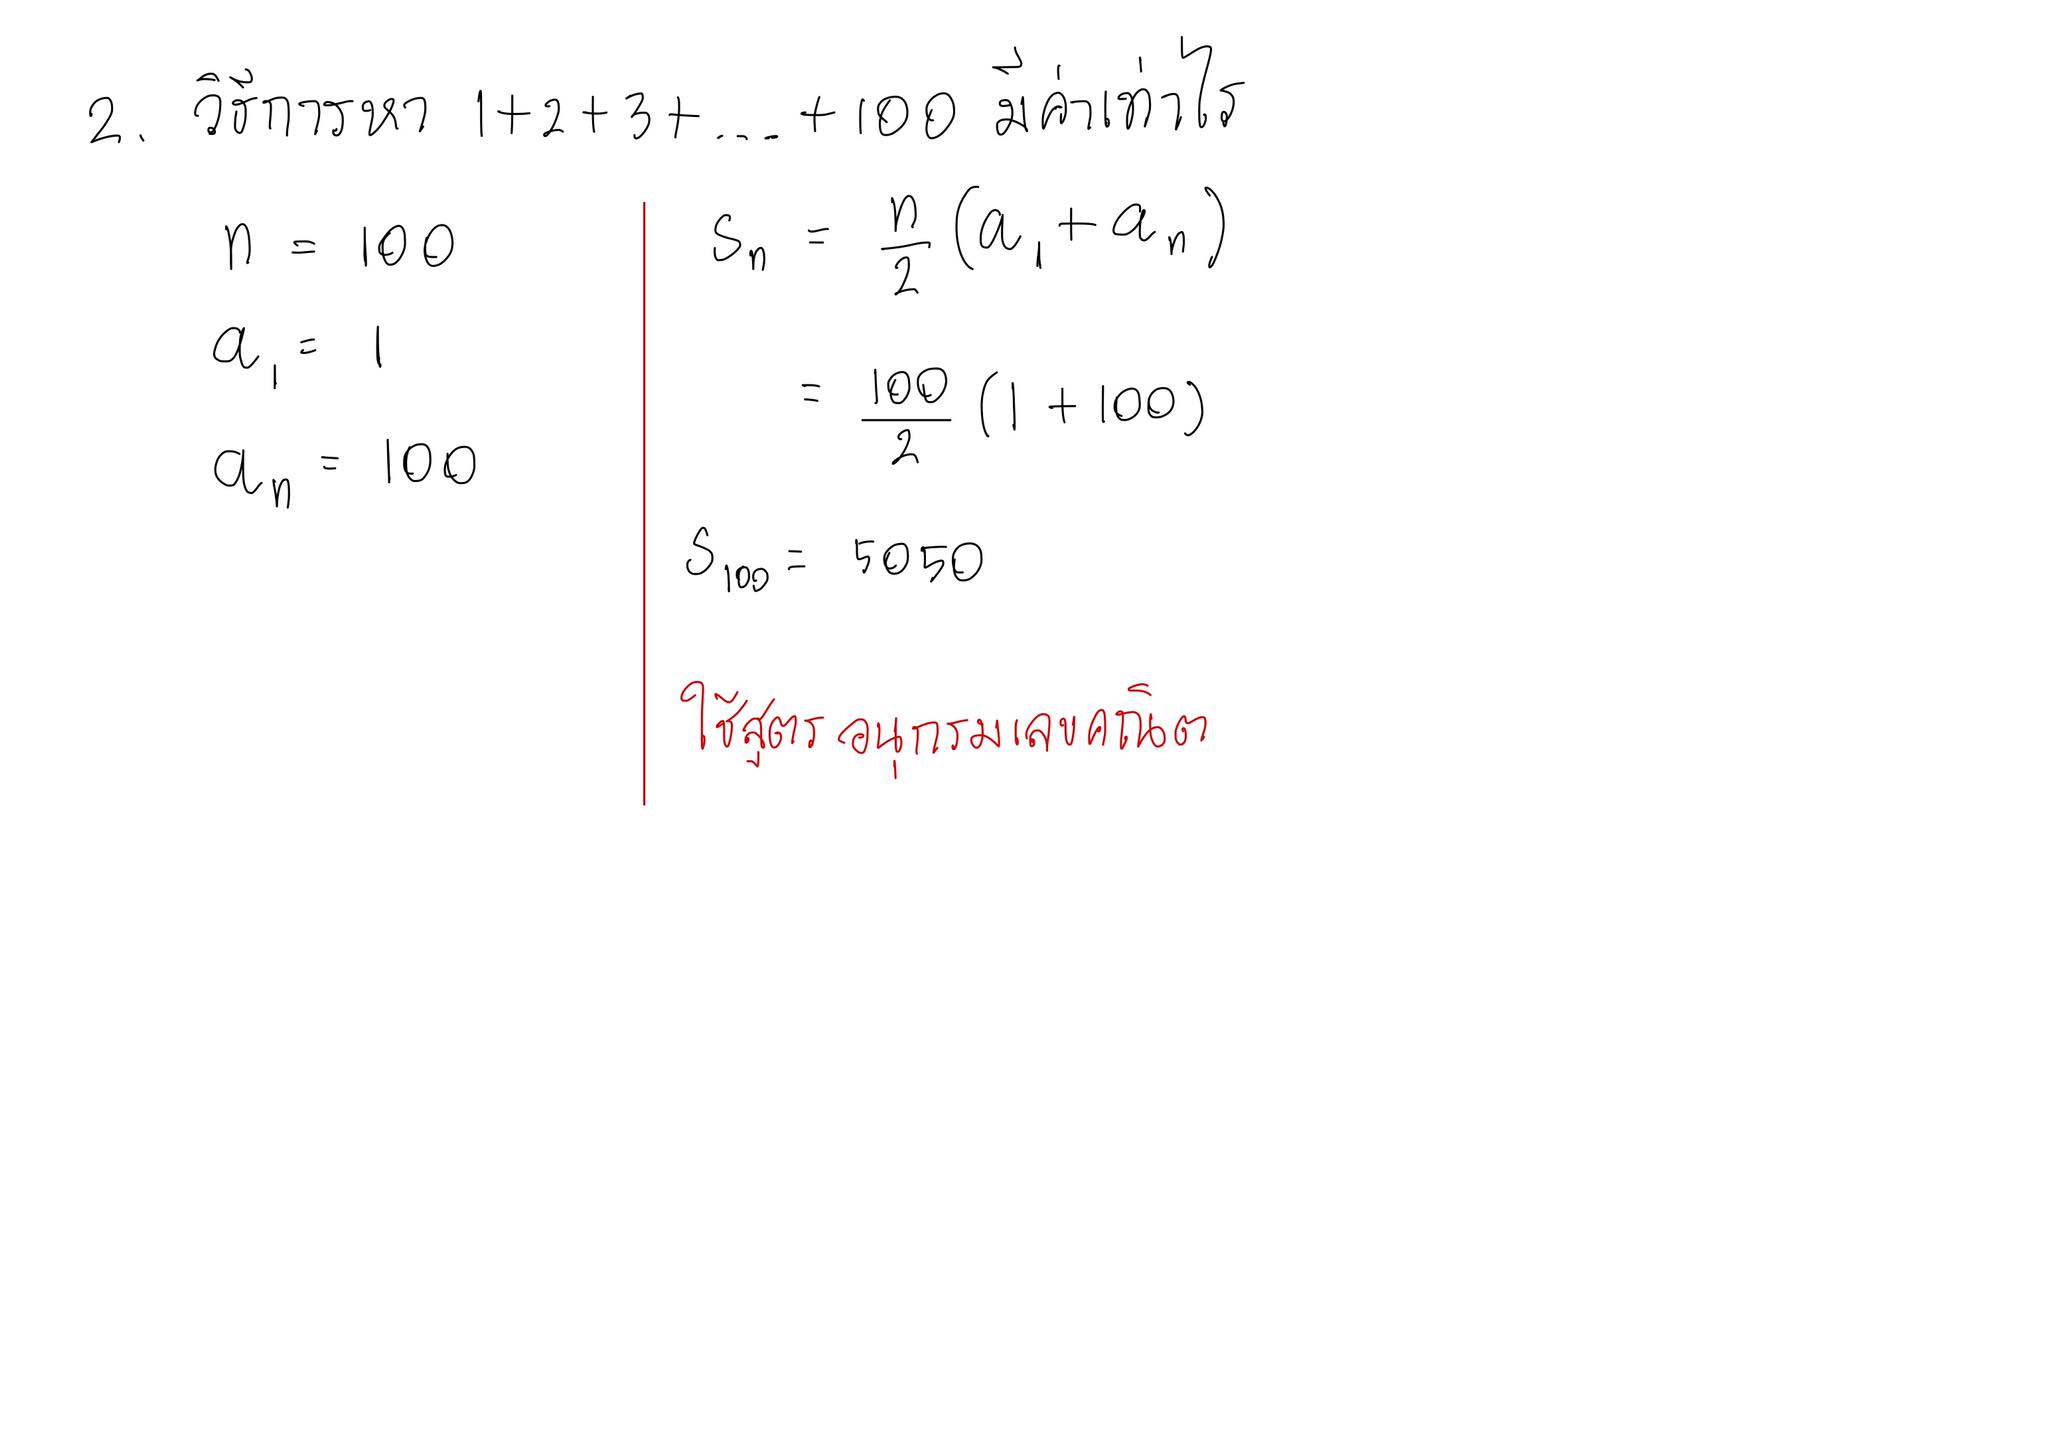 2. วิธีการหา 1+2+3+...+100 มีค่าเท่าไร
n = 100
a₁ = 1
aₙ = 100
Sₙ = n/2 (a₁ + aₙ)
= 100/2 (1 + 100)
S₁₀₀ = 5050
ใช้สูตร อนุกรมเลขคณิต